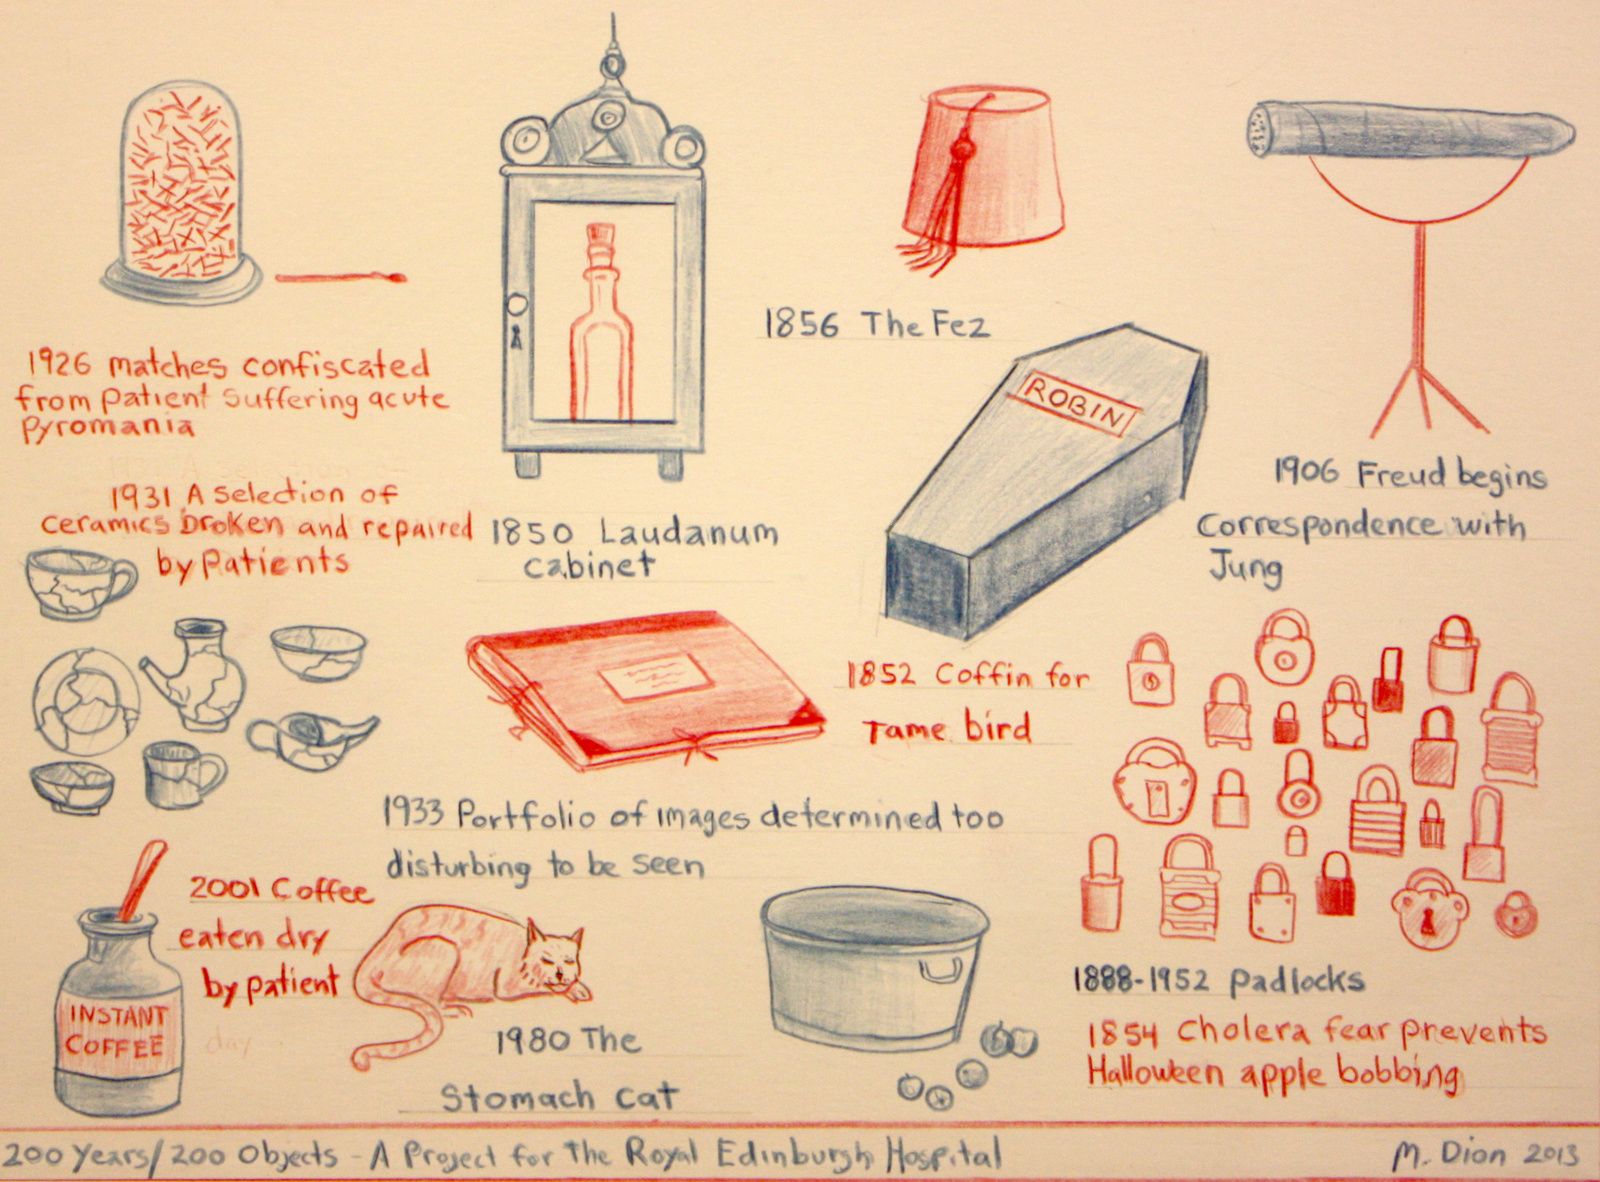 1856 The Fez
ROBIN
1926 matches confiscated
from patient suffering acute
Pyromania
1906 Freud begins
Correspondence with
Jung
1931 A selection of
ceramics broken and repaired
by Patients
1850 Laudanum
cabinet
1852 Coffin for
Tame bird
1933 Portfolio of images determined too
disturbing to be seen
2001 Coffee
eaten dry
by patient
INSTANT
COFFEE
day
1980 The
Stomach cat
1888-1952 Padlocks
1854 Cholera fear prevents
Halloween apple bobbing
200 Years/200 Objects - A Project for The Royal Edinburgh Hospital
M. Dion 2013